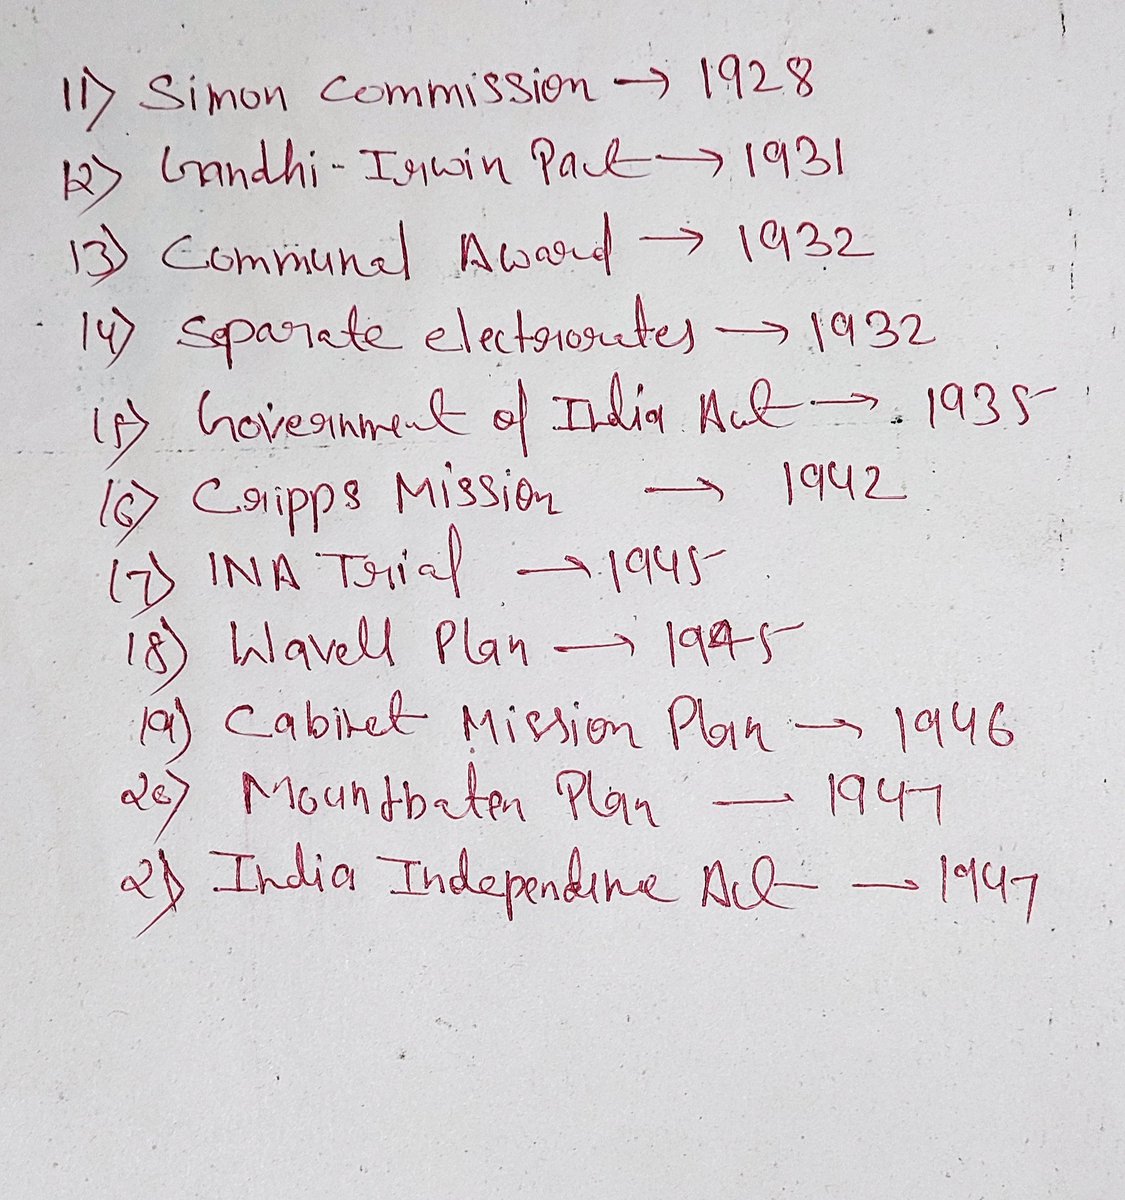 11) Simon Commission → 1928
12) Gandhi-Irwin Pact → 1931
13) Communal Award → 1932
14) Separate electrorates → 1932
15) Government of India Act → 1935
16) Cripps Mission → 1942
17) INA Trial → 1945
18) Wavell Plan → 1945
19) Cabinet Mission Plan → 1946
20) Mountbaten Plan — 1947
21) India Independence Act → 1947